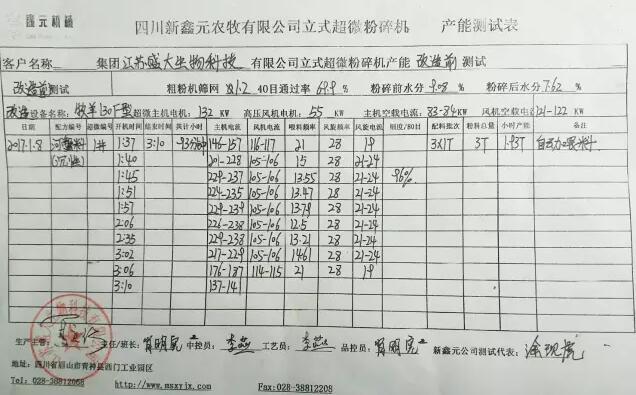 鑫元机械 四川新鑫元农牧有限公司立式超微粉碎机 产能测试表
客户名称: 集团江苏盛大生物科技 有限公司立式超微粉碎机产能 改造前 测试
改造前测试 粗粉机筛网 40目通过率 69.9 % 粉碎前水分 9.08 % 粉碎后水分 7.62 %
改造设备名称: 牧羊130F型 超微主机电机: 132 KW 高压风机电机: 55 KW 主机空载电流: 83-84KW 风机空载电 121-122 KW
日期 配方编号 超微编号 开机时间 结束时间 共计小时 主机电流 风机电流 喂料频率 风旋频率 风旋电流 细度/80目 配料批次 粉料总量 小时产能 备注
2017.1.8 1# 1:37 3:10 93分钟 146-157 116-117 21 28 19 3X1T 3T 1.93T
(沉性) 1:40 201-228 105-106 15 28 21-24
1:45 229-237 105-106 13.55 28 21-24 96%
1:51 224-235 105-106 13.47 28 21-24
1:57 229-239 105-106 13.79 28 21-24
2:06 226-238 105-106 12.5 28 21-24
2:35 229-238 105-106 13.21 28 21-24
3:02 217-229 105-106 14.61 28 21-24
3:06 176-187 114-115 21 28 19
3:10 137-141
生产主管: 主任/班长: 中控员: 工艺员: 品控员: 新鑫元公司测试代表:
地址: 四川省眉山市青神县西门工业园区
Tel: 028-38812068 http://www.msxyjx.com Fax:028-38812208